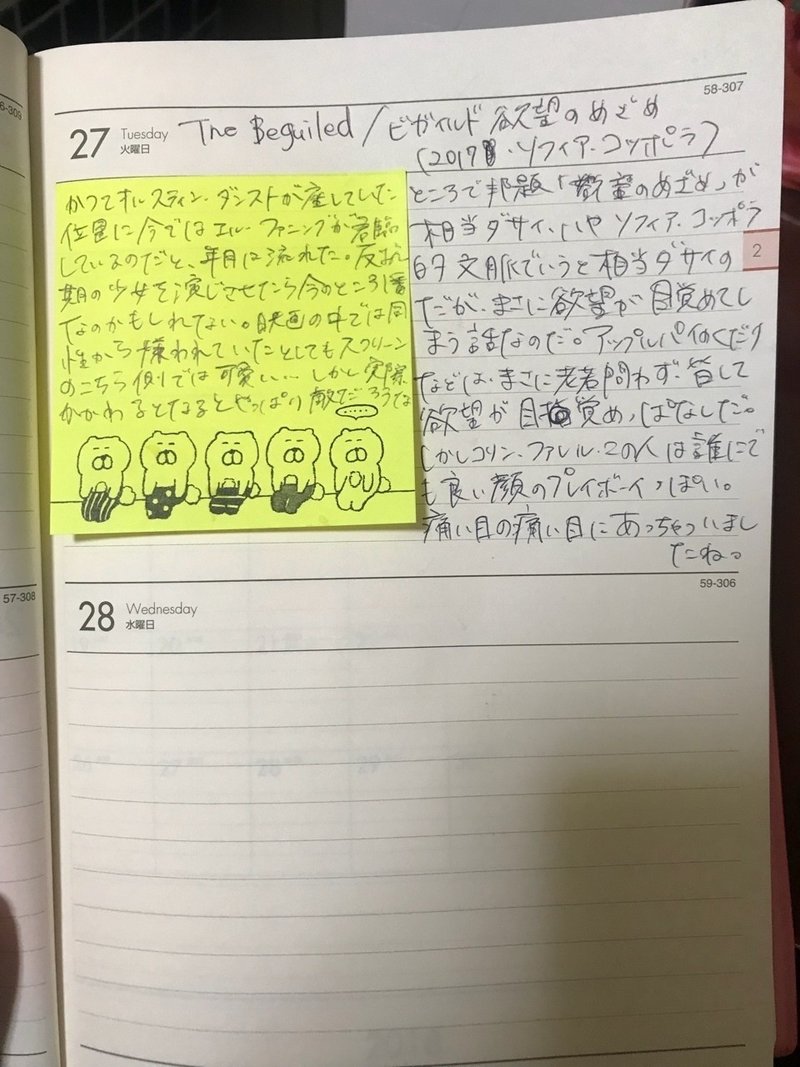 58-307
27 Tuesday 火曜日
The Beguiled / ビガイルド 欲望のめざめ
(2017・ソフィア・コッポラ)
かつてキルスティン・ダンストが座していた
位置に今ではエル・ファニングが君臨
しているのだと、年月は流れた。反抗
期の少女を演じさせたら今のところ1番
なのかもしれない。映画の中では同
性から嫌われていたとしてもスクリーン
のこちら側では可愛い… しかし実際
かかわるとなるとやっぱり敵だろうな
ところで邦題「欲望のめざめ」が
相当ダサイ、いや ソフィア・コッポラ
的文脈でいうと相当ダサイの
だが、まさに欲望が目覚めてし
まう話なのだ。アップルパイのくだり
などは、まさに老若問わず、皆して
欲望が目覚めっぱなしだ。
しかしコリン・ファレル・この人は誰にで
も良い顔のプレイボーイっぽい。
痛い目の痛い目にあっちゃいまし
たね。
2
6-309
57-308
59-306
28 Wednesday 水曜日